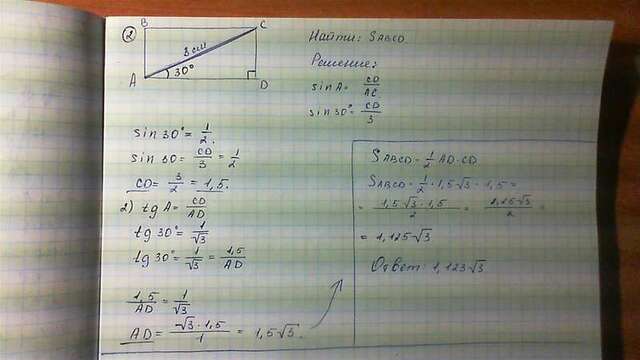 2
B C
3 см
A 30° D
Найти: SABCD
Решение:
sin A = CD/AC
sin 30° = CD/3
sin 30° = 1/2.
sin 60 = CD/3 = 1/2
CD = 3/2 = 1,5.
2) tg A = CD/AD
tg 30° = 1/√3
tg 30° = 1/√3 = 1,5/AD
1,5/AD = 1/√3
AD = √3 · 1,5/1 = 1,5√3.
SABCD = 1/2 AD · CD
SABCD = 1/2 · 1,5√3 · 1,5 =
= 1,5√3 · 1,5/2 = 2,25√3/2 =
= 1,125√3
Ответ: 1,123√3